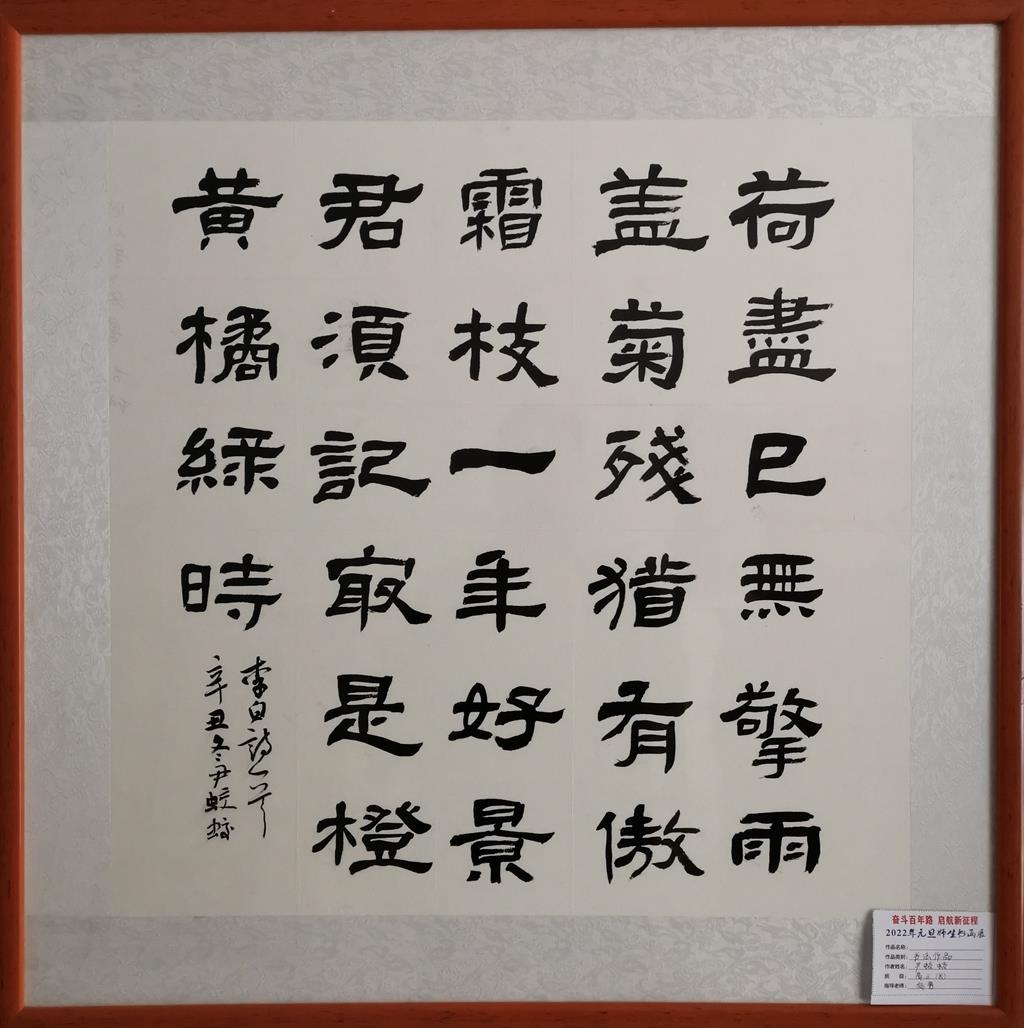 荷盡已無擎雨
盖菊殘猶有傲
霜枝一年好景
君須記最是橙
黄橘緑時
李白詩一首
辛丑冬尹
奋斗百年路 启航新征程
2022年元旦师生书画展
作品名称：
作品类别：书法作品
作者姓名：尹
班 级：高二
指导老师：